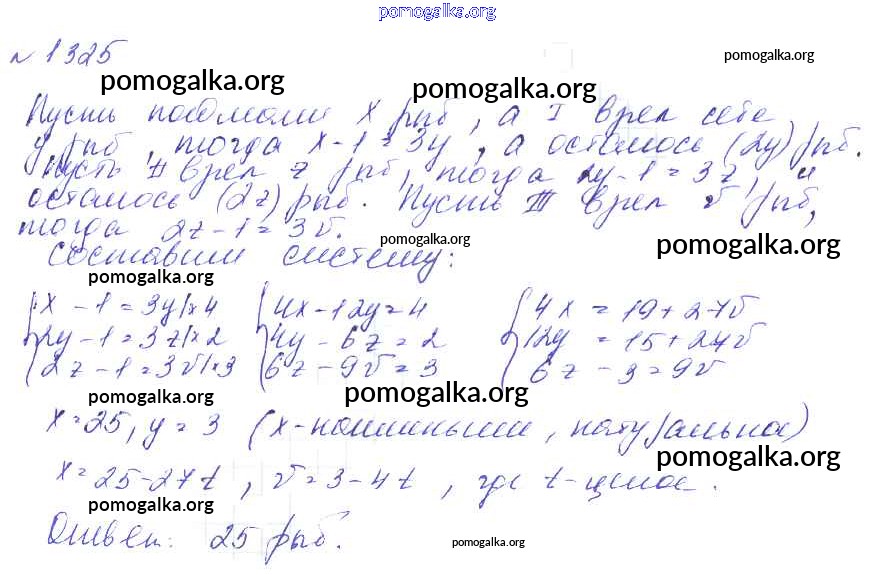 pomogalka.org
№ 1325
pomogalka.org
pomogalka.org pomogalka.org
Пусть поймали x рыб, а I взял себе
y рыб, тогда x - 1 = 3y, а осталось (2y) рыб.
Пусть II взял z рыб, тогда 2y - 1 = 3z, и
осталось (2z) рыб. Пусть III взял v рыб,
тогда 2z - 1 = 3v.
pomogalka.org pomogalka.org
Составим систему:
pomogalka.org
x - 1 = 3y | x 4 4x - 12y = 4 4x = 19 + 27v
2y - 1 = 3z | x 2 4y - 6z = 2 12y = 15 + 27v
2z - 1 = 3v | x 3 6z - 9v = 3 6z - 3 = 9v
pomogalka.org pomogalka.org
x = 25, y = 3 (x - наименьшии, натуральное)
pomogalka.org
x = 25 - 27t, v = 3 - 4t, где t - целое.
pomogalka.org
Ответ: 25 рыб.
pomogalka.org